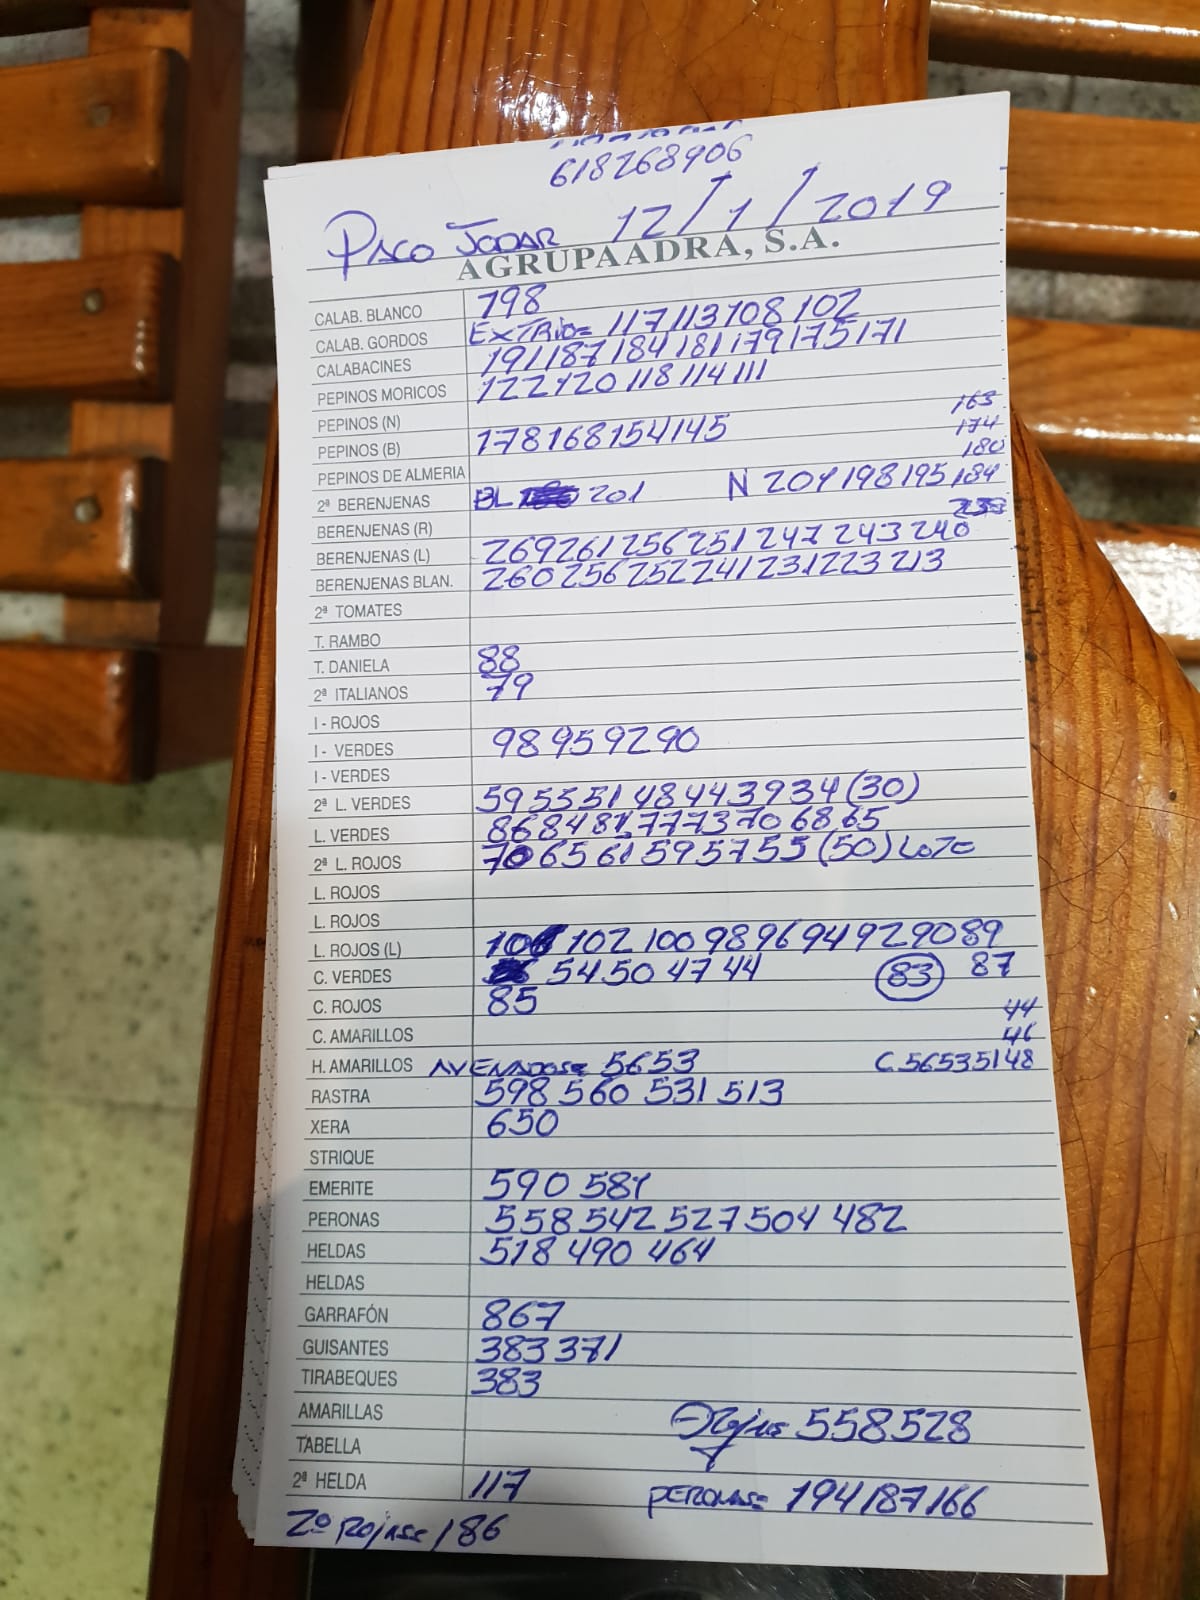 618268906
PACO JODAR 12/1/2019
AGRUPAADRA, S.A.
CALAB. BLANCO 798
CALAB. GORDOS EXTRIO= 117 113 108 102
CALABACINES 191 187 184 181 179 175 171
PEPINOS MORICOS 122 120 118 114 111
163
PEPINOS (N)
174
PEPINOS (B) 178 168 154 145
180
PEPINOS DE ALMERIA
2ª BERENJENAS BL 201 N 201 198 195 184
BERENJENAS (R)
BERENJENAS (L) 269 261 256 251 247 243 240
BERENJENAS BLAN. 260 256 252 241 231 223 213
2ª TOMATES
T. RAMBO
T. DANIELA 88
2ª ITALIANOS 79
I - ROJOS
I - VERDES 98 95 92 90
I - VERDES
2ª L. VERDES 59 55 51 48 44 39 34 (30)
L. VERDES 86 84 81 77 73 70 68 65
2ª L. ROJOS 70 65 61 59 57 55 (50) LOTE
L. ROJOS
L. ROJOS
L. ROJOS (L) 102 100 98 96 94 92 90 89
C. VERDES 54 50 47 44 83 87
C. ROJOS 85
44
C. AMARILLOS
46
H. AMARILLOS AVENADOS= 56 53 C. 56 53 51 48
RASTRA 598 560 531 513
XERA 650
STRIQUE
EMERITE 590 581
PERONAS 558 542 527 504 482
HELDAS 518 490 464
HELDAS
GARRAFÓN 867
GUISANTES 383 371
TIRABEQUES 383
AMARILLAS Rojas 558 528
TABELLA
2ª HELDA 117 PERONAS= 194 187 166
2º ROJAS= 186